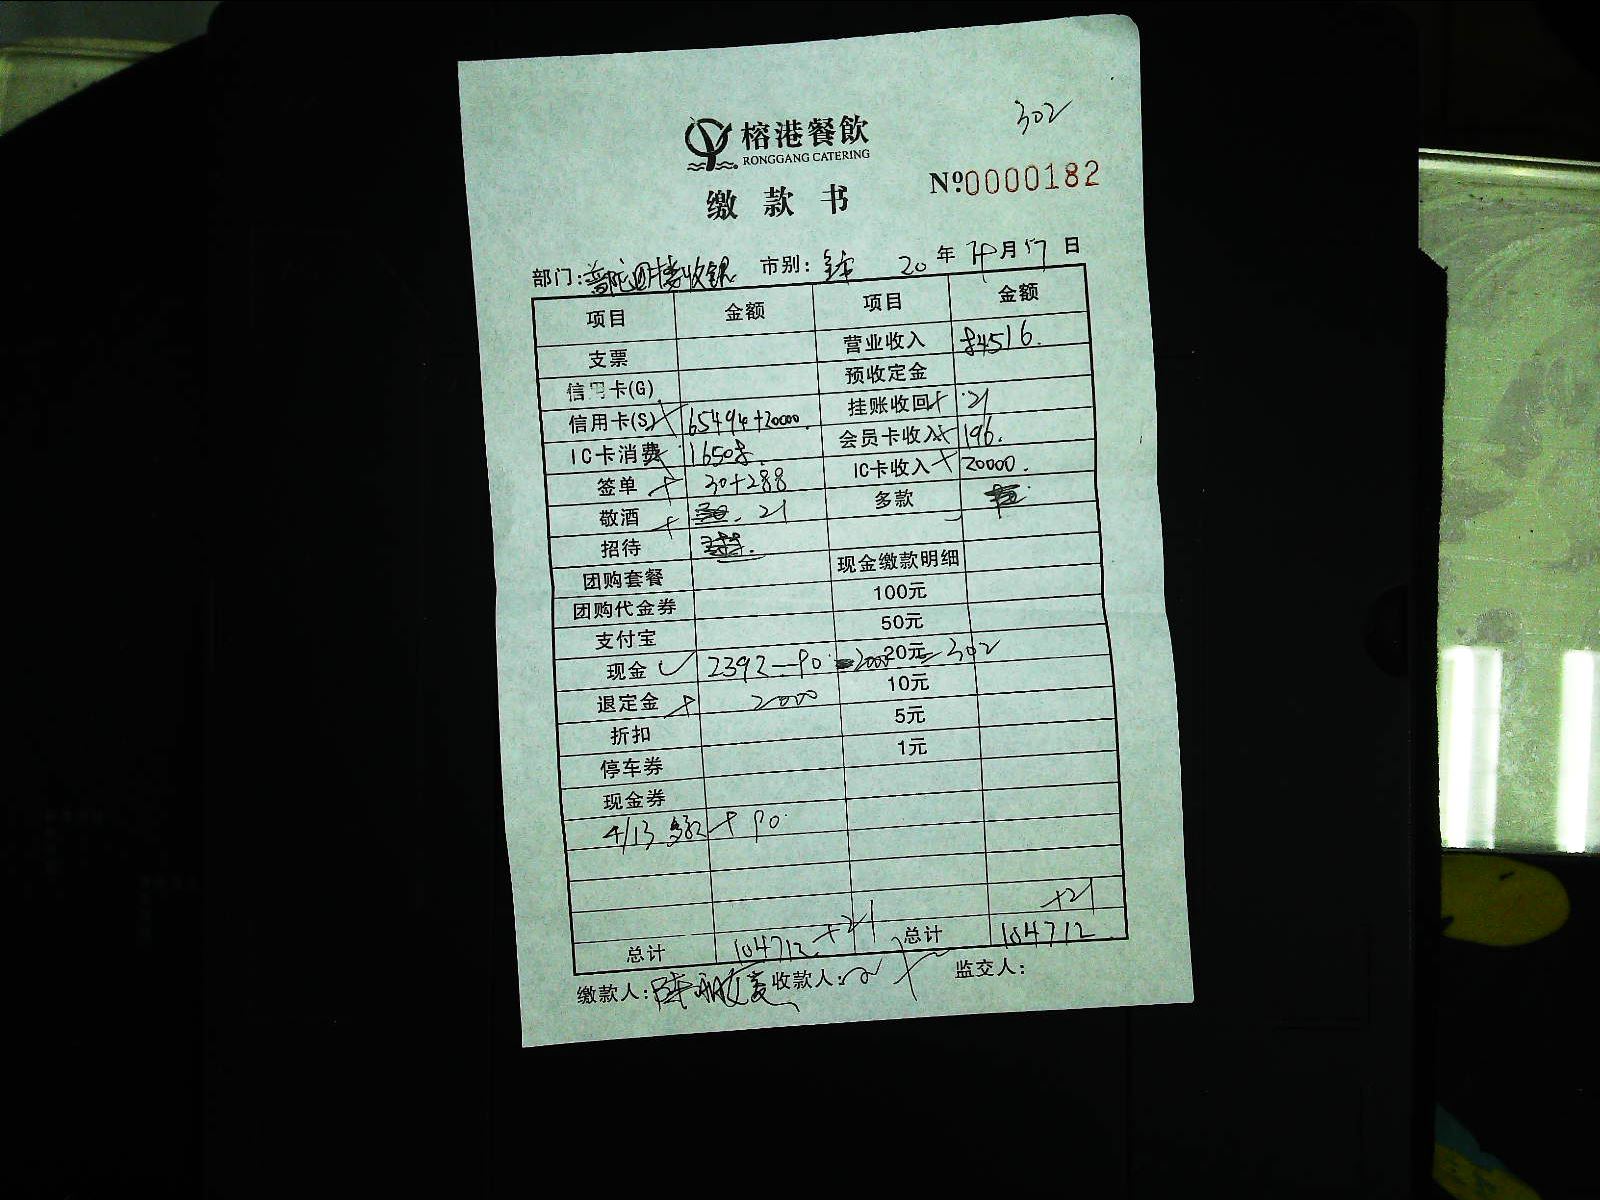 302
榕港餐飲
RONGGANG CATERING
缴款书 Nº0000182
部门:普陀四楼收银 市别: 20 年 4月17日
项目 金额 项目 金额
支票 营业收入 84516.
信用卡(G) 预收定金
信用卡(S) 65494+20000. 挂账收回+ 21
IC卡消费 16508. 会员卡收入+ 196.
签单 + 30+288 IC卡收入+ 20000.
敬酒 + 21 多款
招待
团购套餐 现金缴款明细
团购代金券 100元
支付宝 50元
现金 ✓ 2392-90-2000=302 20元
退定金 + 2000 10元
折扣 5元
停车券 1元
现金券
4/13 多款 + 90
总计 104712.+21 总计 104712 +21
缴款人: 收款人: 监交人: